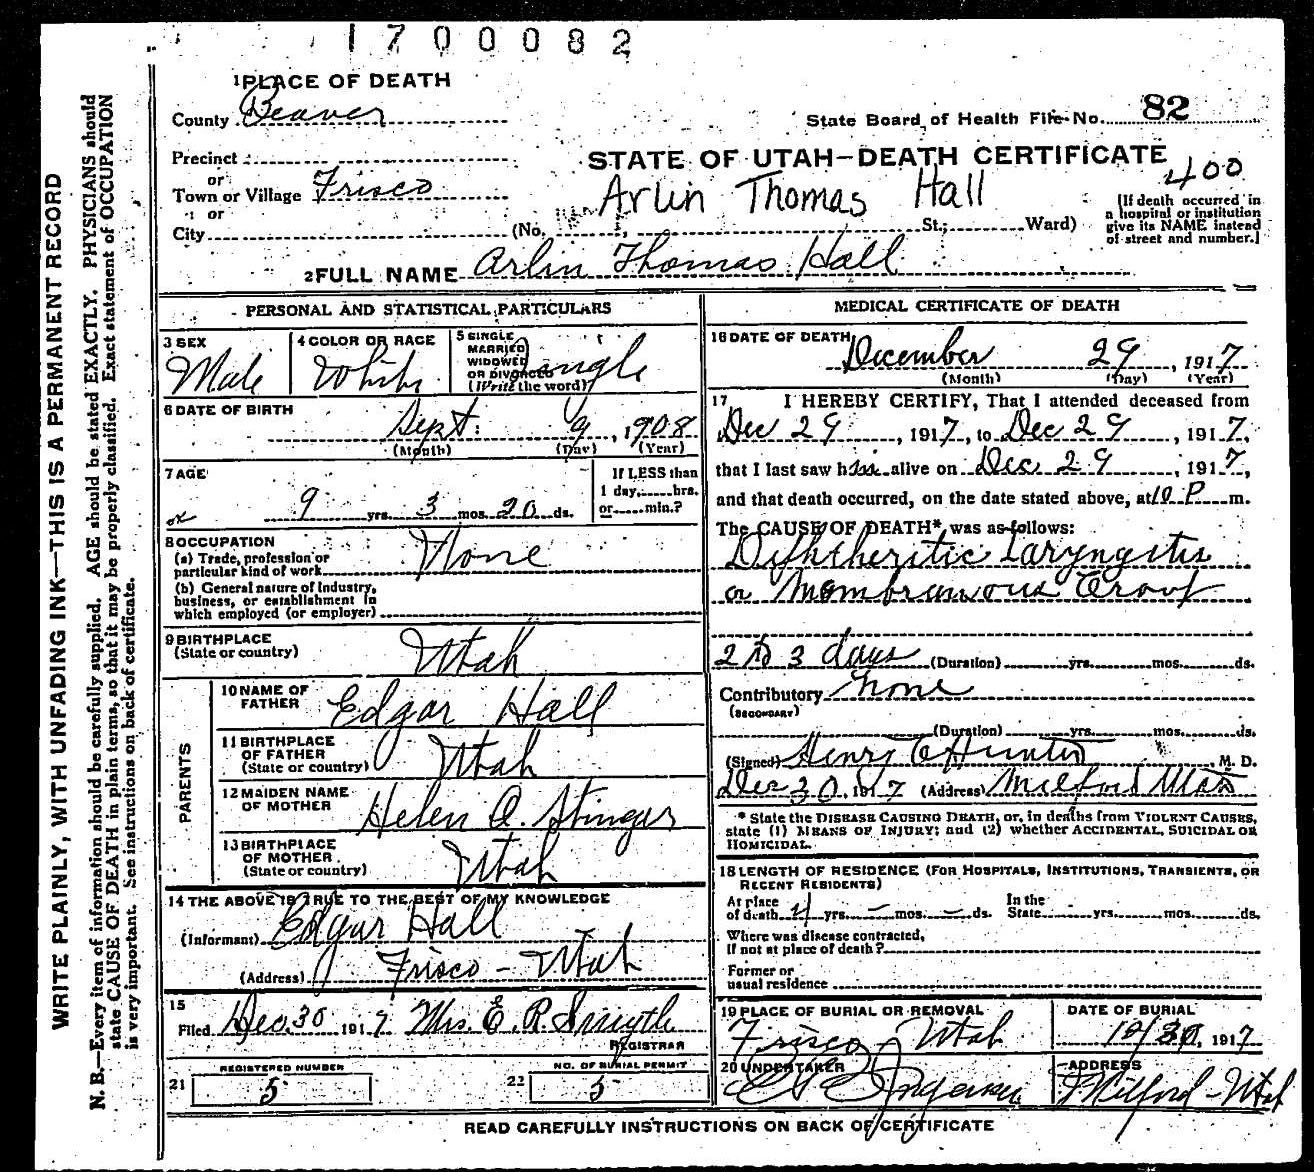 1700082
1 PLACE OF DEATH
County Beaver
State Board of Health File No. 82
Precinct
or
Town or Village Frisco
or
City (No. , St.; Ward)
STATE OF UTAH—DEATH CERTIFICATE
400
Arlin Thomas Hall
[If death occurred in
a hospital or institution
give its NAME instead
of street and number.]
2 FULL NAME Arlin Thomas Hall
PERSONAL AND STATISTICAL PARTICULARS
3 SEX
Male
4 COLOR OR RACE
White
5 SINGLE
MARRIED
WIDOWED
OR DIVORCED
(Write the word)
Single
6 DATE OF BIRTH
Sept. 9, 1908
(Month) (Day) (Year)
7 AGE
9 yrs. 3 mos. 20 ds.
If LESS than
1 day, hrs.
or min.?
8 OCCUPATION
(a) Trade, profession or
particular kind of work
None
(b) General nature of industry,
business, or establishment in
which employed (or employer)
9 BIRTHPLACE
(State or country)
Utah
PARENTS
10 NAME OF
FATHER
Edgar Hall
11 BIRTHPLACE
OF FATHER
(State or country)
Utah
12 MAIDEN NAME
OF MOTHER
Helen A. Stingar
13 BIRTHPLACE
OF MOTHER
(State or country)
Utah
14 THE ABOVE IS TRUE TO THE BEST OF MY KNOWLEDGE
(Informant) Edgar Hall
(Address) Frisco - Utah
15
Filed Dec. 30 1917 Mrs. E. P. Smyth
REGISTRAR
21 REGISTERED NUMBER
5
22 NO. OF BURIAL PERMIT
5
MEDICAL CERTIFICATE OF DEATH
16 DATE OF DEATH
December 29, 1917
(Month) (Day) (Year)
17 I HEREBY CERTIFY, That I attended deceased from
Dec 29, 1917, to Dec 29, 1917,
that I last saw him alive on Dec 29, 1917,
and that death occurred, on the date stated above, at 10 P m.
The CAUSE OF DEATH* was as follows:
Diphtheritic Laryngitis
or Membranous Croup
2 to 3 days (Duration) yrs. mos. ds.
Contributory None
(SECONDARY)
(Duration) yrs. mos. ds.
(Signed) Henry C Hunter, M. D.
Dec 30, 1917 (Address) Milford Utah
* State the DISEASE CAUSING DEATH, or, in deaths from VIOLENT CAUSES,
state (1) MEANS OF INJURY; and (2) whether ACCIDENTAL, SUICIDAL OR
HOMICIDAL.
18 LENGTH OF RESIDENCE (FOR HOSPITALS, INSTITUTIONS, TRANSIENTS, OR
RECENT RESIDENTS)
At place
of death yrs. — mos. — ds.
In the
State yrs. mos. ds.
Where was disease contracted,
if not at place of death?
Former or
usual residence
19 PLACE OF BURIAL OR REMOVAL
Frisco, Utah
DATE OF BURIAL
12/30, 1917
20 UNDERTAKER
Jorgensen
ADDRESS
Milford - Utah
READ CAREFULLY INSTRUCTIONS ON BACK OF CERTIFICATE
WRITE PLAINLY, WITH UNFADING INK—THIS IS A PERMANENT RECORD
N. B.—Every item of information should be carefully supplied. AGE should be stated EXACTLY. PHYSICIANS should
state CAUSE OF DEATH in plain terms, so that it may be properly classified. Exact statement of OCCUPATION
is very important. See instructions on back of certificate.